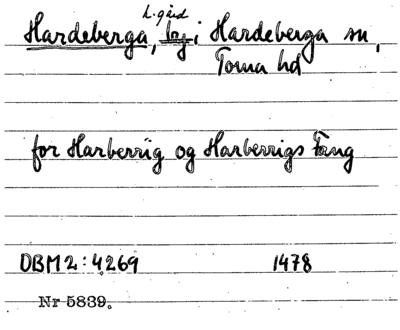 h. gård
Hardeberga, by i Hardeberga sn,
Torna hd
for Harberrig og Harberrigs Fang
DBM2:4269 1478
Nr 5839.